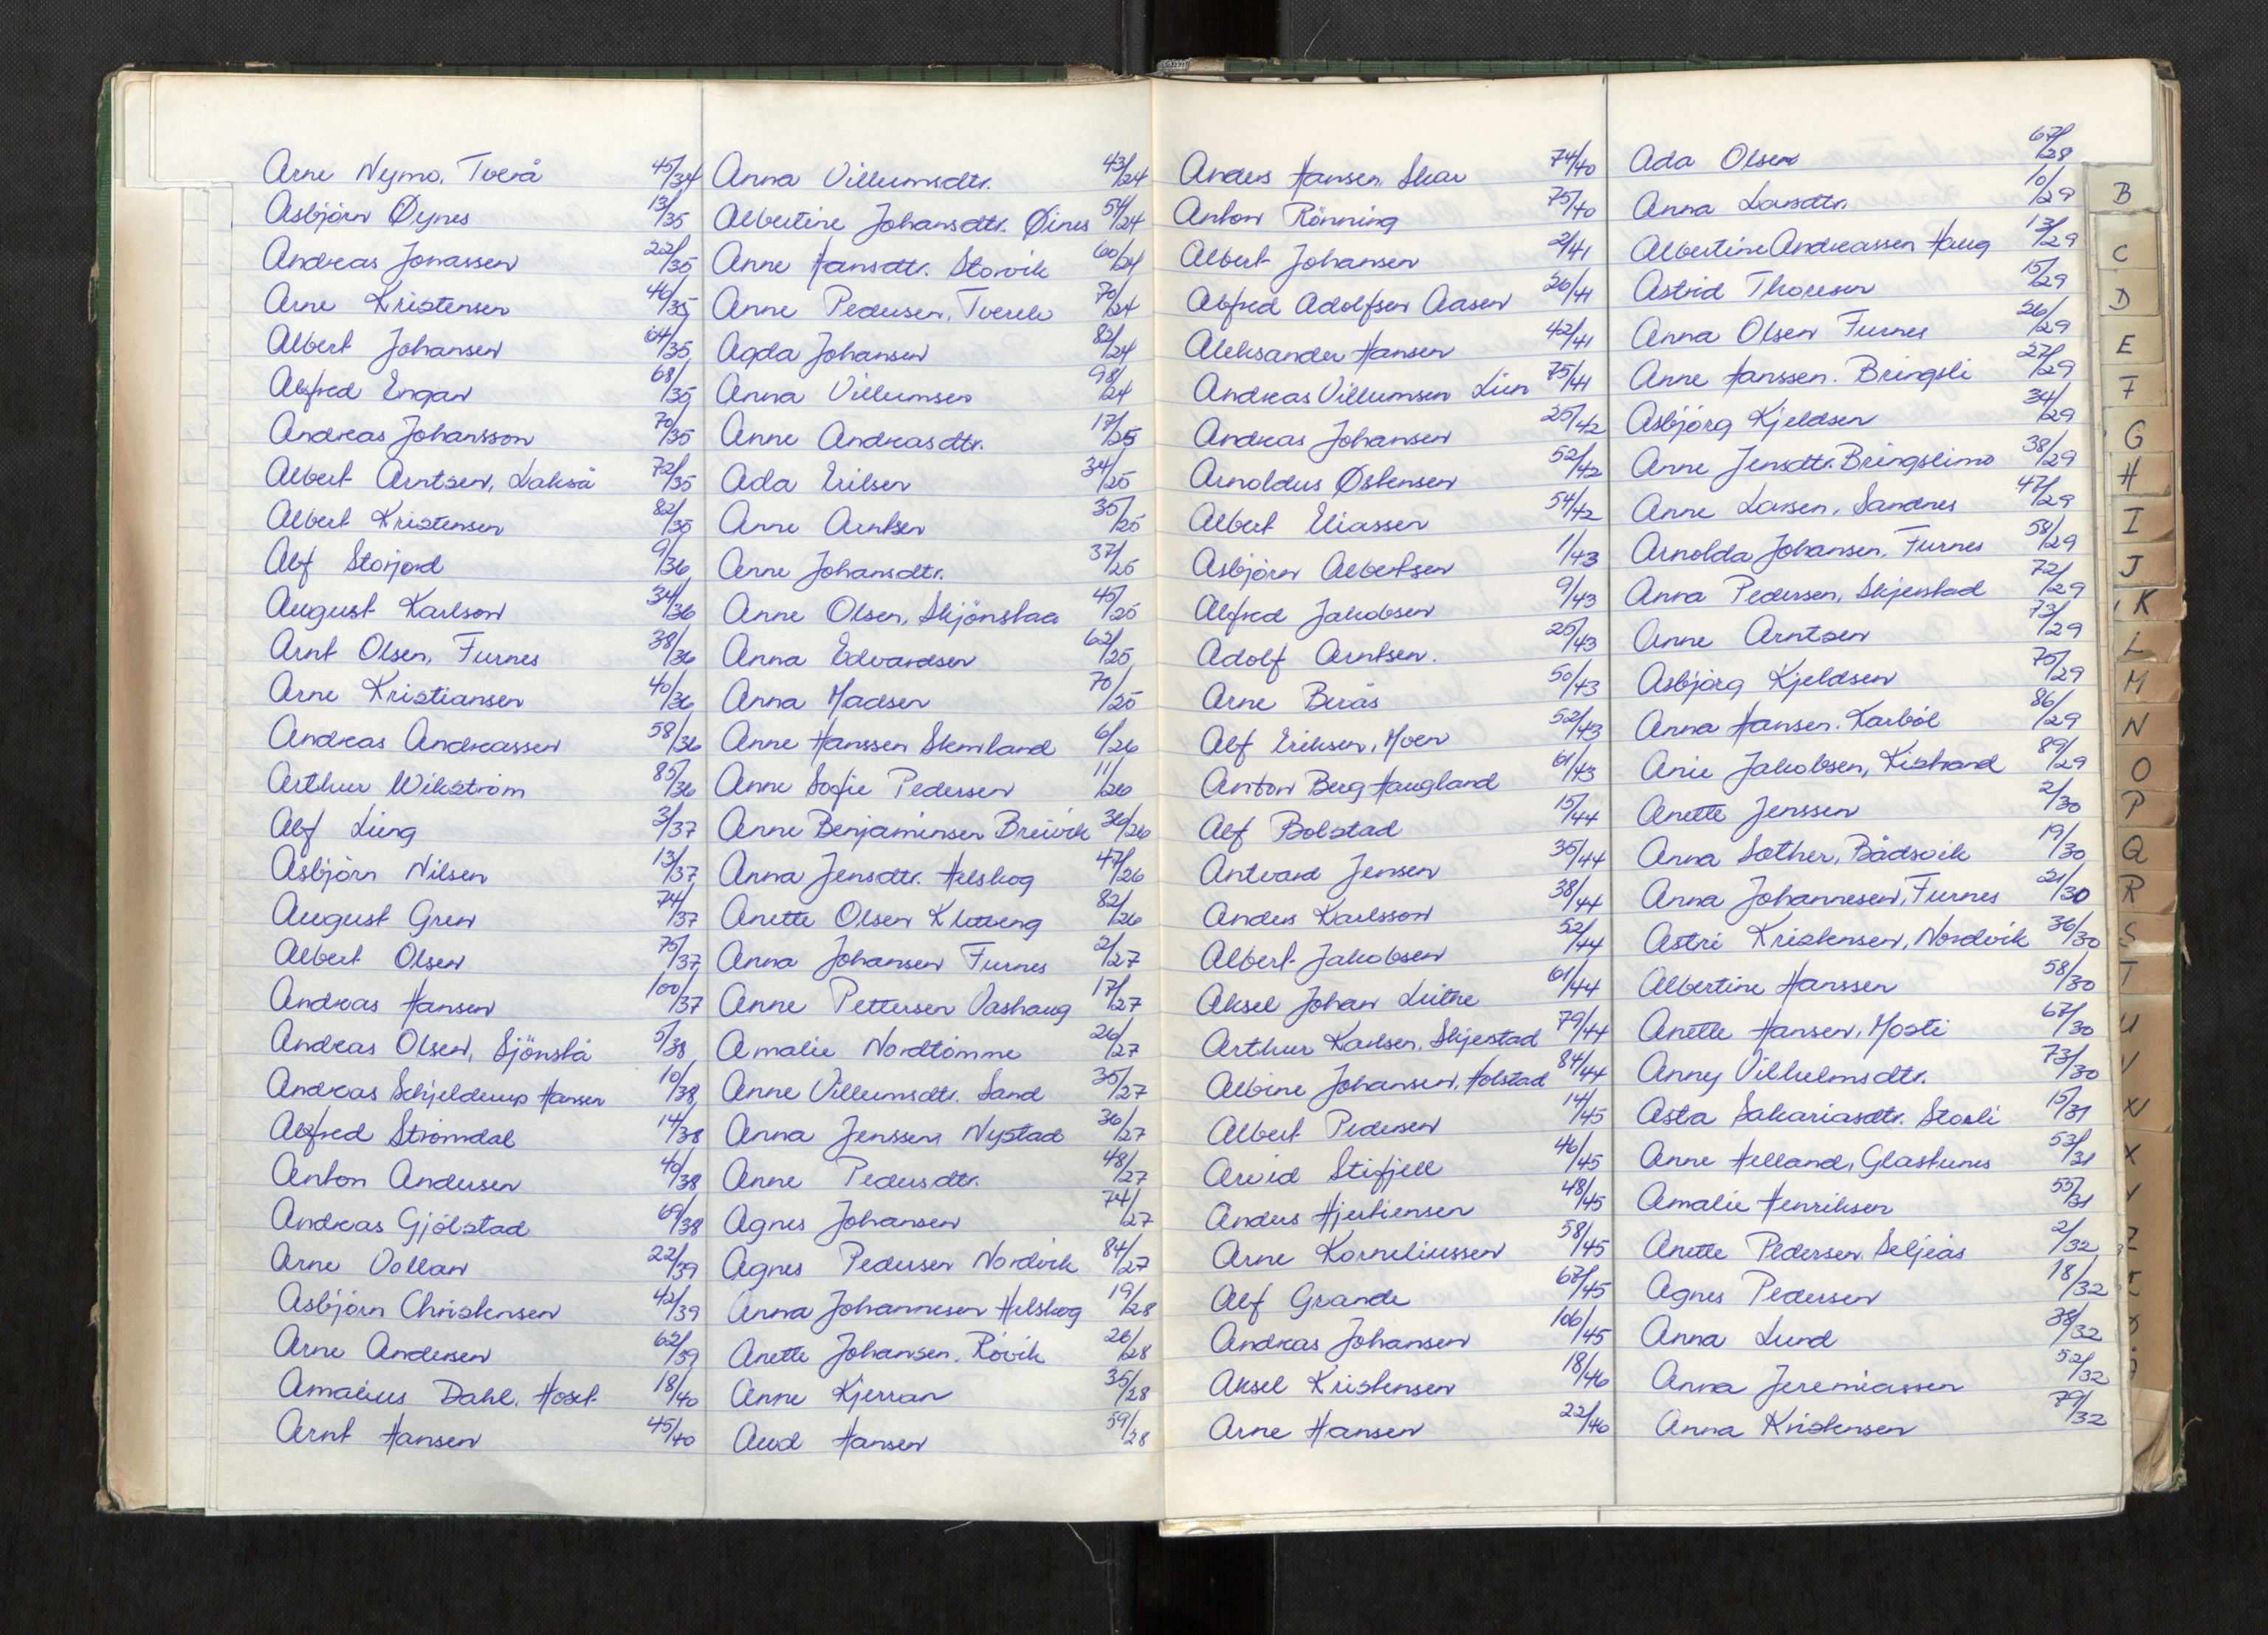 Arne Nymo, Tverå 45/34
Asbjörn Øynes 13/35
Andreas Jonassen 22/35
Arne Kristensen 46/35
Albert Johansen 64/35
Alfred Engan 68/35
Andreas Johansson 70/35
Albert Arntsen, Lakså 72/35
Albert Kristensen 82/35
Alf Storjord 9/36
August Karlson 34/36
Arnt Olsen, Furnes 38/36
Arne Kristiansen 40/36
Andreas Andreassen 58/36
Arthur Wikström 85/36
Alf Lieng 3/37
Asbjörn Nilsen 13/37
August Gren 74/37
Albert Olsen 75/37
Andreas Hansen 100/37
Andreas Olsen, Sjönstå 5/38
Andreas Schjelderup Hansen 10/38
Alfred Strömdal 14/38
Anton Andersen 40/38
Andreas Gjölstad 69/38
Arne Vollan 22/39
Asbjörn Christensen 42/39
Arne Andersen 62/39
Amalius Dahl, Hoset 18/40
Arnt Hansen 45/40
Anna Villumsdtr. 43/24
Albertine Johansdtr. Øines 54/24
Anne Hansdtr. Storvik 60/24
Anne Pedersen, Tverelv 70/24
Agda Johansen 82/24
Anna Villumsen 98/24
Anne Andreasdtr. 17/25
Ada Eriksen 34/25
Anne Arntsen 35/25
Anne Johansdtr. 37/25
Anne Olsen, Skjönstaa 45/25
Anna Edvardsen 62/25
Anna Madsen 70/25
Anne Hanssen Skevland 6/26
Anne Sofie Pedersen 11/26
Anne Benjaminsen Breivik 36/26
Anna Jensdtr. Helskog 47/26
Anette Olsen Kletteng 82/26
Anna Johansen Furnes 2/27
Anne Pettersen Vashaug 17/27
Amalie Nordtömme 26/27
Anne Villumsdtr. Sand 35/27
Anna Jenssen Nystad 36/27
Anne Pedersdtr. 48/27
Agnes Johansen 74/27
Agnes Pedersen Nordvik 84/27
Anna Johannesen Helskog 19/28
Anette Johansen, Rövik 26/28
Anne Kjerran 35/28
Aud Hansen 59/28
Anders Hansen, Skar 74/40
Anton Rönning 75/40
Albert Johansen 2/41
Alfred Adolfsen Aasen 26/41
Aleksander Hansen 42/41
Andreas Villumsen Lien 75/41
Andreas Johansen 25/42
Arnoldus Østensen 52/42
Albert Eliassen 54/42
Asbjörn Albertsen 1/43
Alfred Jakobsen 9/43
Adolf Arntsen. 25/43
Arne Berås 50/43
Alf Eriksen, Moen 52/43
Anton Berg Haugland 61/43
Alf Bolstad 15/44
Antvard Jensen 35/44
Anders Karlsson 38/44
Albert Jakobsen 52/44
Aksel Johan Leithe 61/44
Arthur Karlsen, Skjerstad 79/44
Albine Johansen, Holstad 84/44
Albert Pedersen 14/45
Arvid Stifjell 46/45
Anders Hjertiensen 48/45
Arne Korneliussen 58/45
Alf Grande 67/45
Andreas Johansen 106/45
Aksel Kristensen 18/46
Arne Hansen 22/46
Ada Olsen 67/28
Anna Larsdtr. 10/29
Albertine Andreassen Haug 13/29
Astrid Thoresen 15/29
Anna Olsen Furnes 26/29
Anne Hanssen. Bringsli 27/29
Asbjörg Kjeldsen 34/29
Anne Jensdtr. Bringslimo 38/29
Anne Larsen, Sandnes 47/29
Arnolda Johansen, Furnes 58/29
Anna Pedersen, Skjerstad 72/29
Anne Arntzen 73/29
Asbjörg Kjeldsen 75/29
Anna Hansen. Karböl 86/29
Anie Jakobsen, Kistrand 89/29
Anette Jenssen 2/30
Anna Sæther, Bådsvik 19/30
Anna Johannesen, Furnes 21/30
Astri Kristensen, Nordvik 36/30
Albertine Hanssen 58/30
Anette Hansen, Mosti 67/30
Anny Vilhelmsdtr. 73/30
Asta Sakariasdtr. Storli 15/31
Anne Helland, Glastunes 53/31
Amalie Henriksen 55/31
Anette Pedersen. Seljeås 2/32
Agnes Pedersen 18/32
Anna Lund 38/32
Anna Jeremiassen 52/32
Anna Kristensen 79/32
B
C
D
E
F
G
H
I
J
K
L
M
N
O
P
Q
R
S
T
U
V
W
X
Y
Z